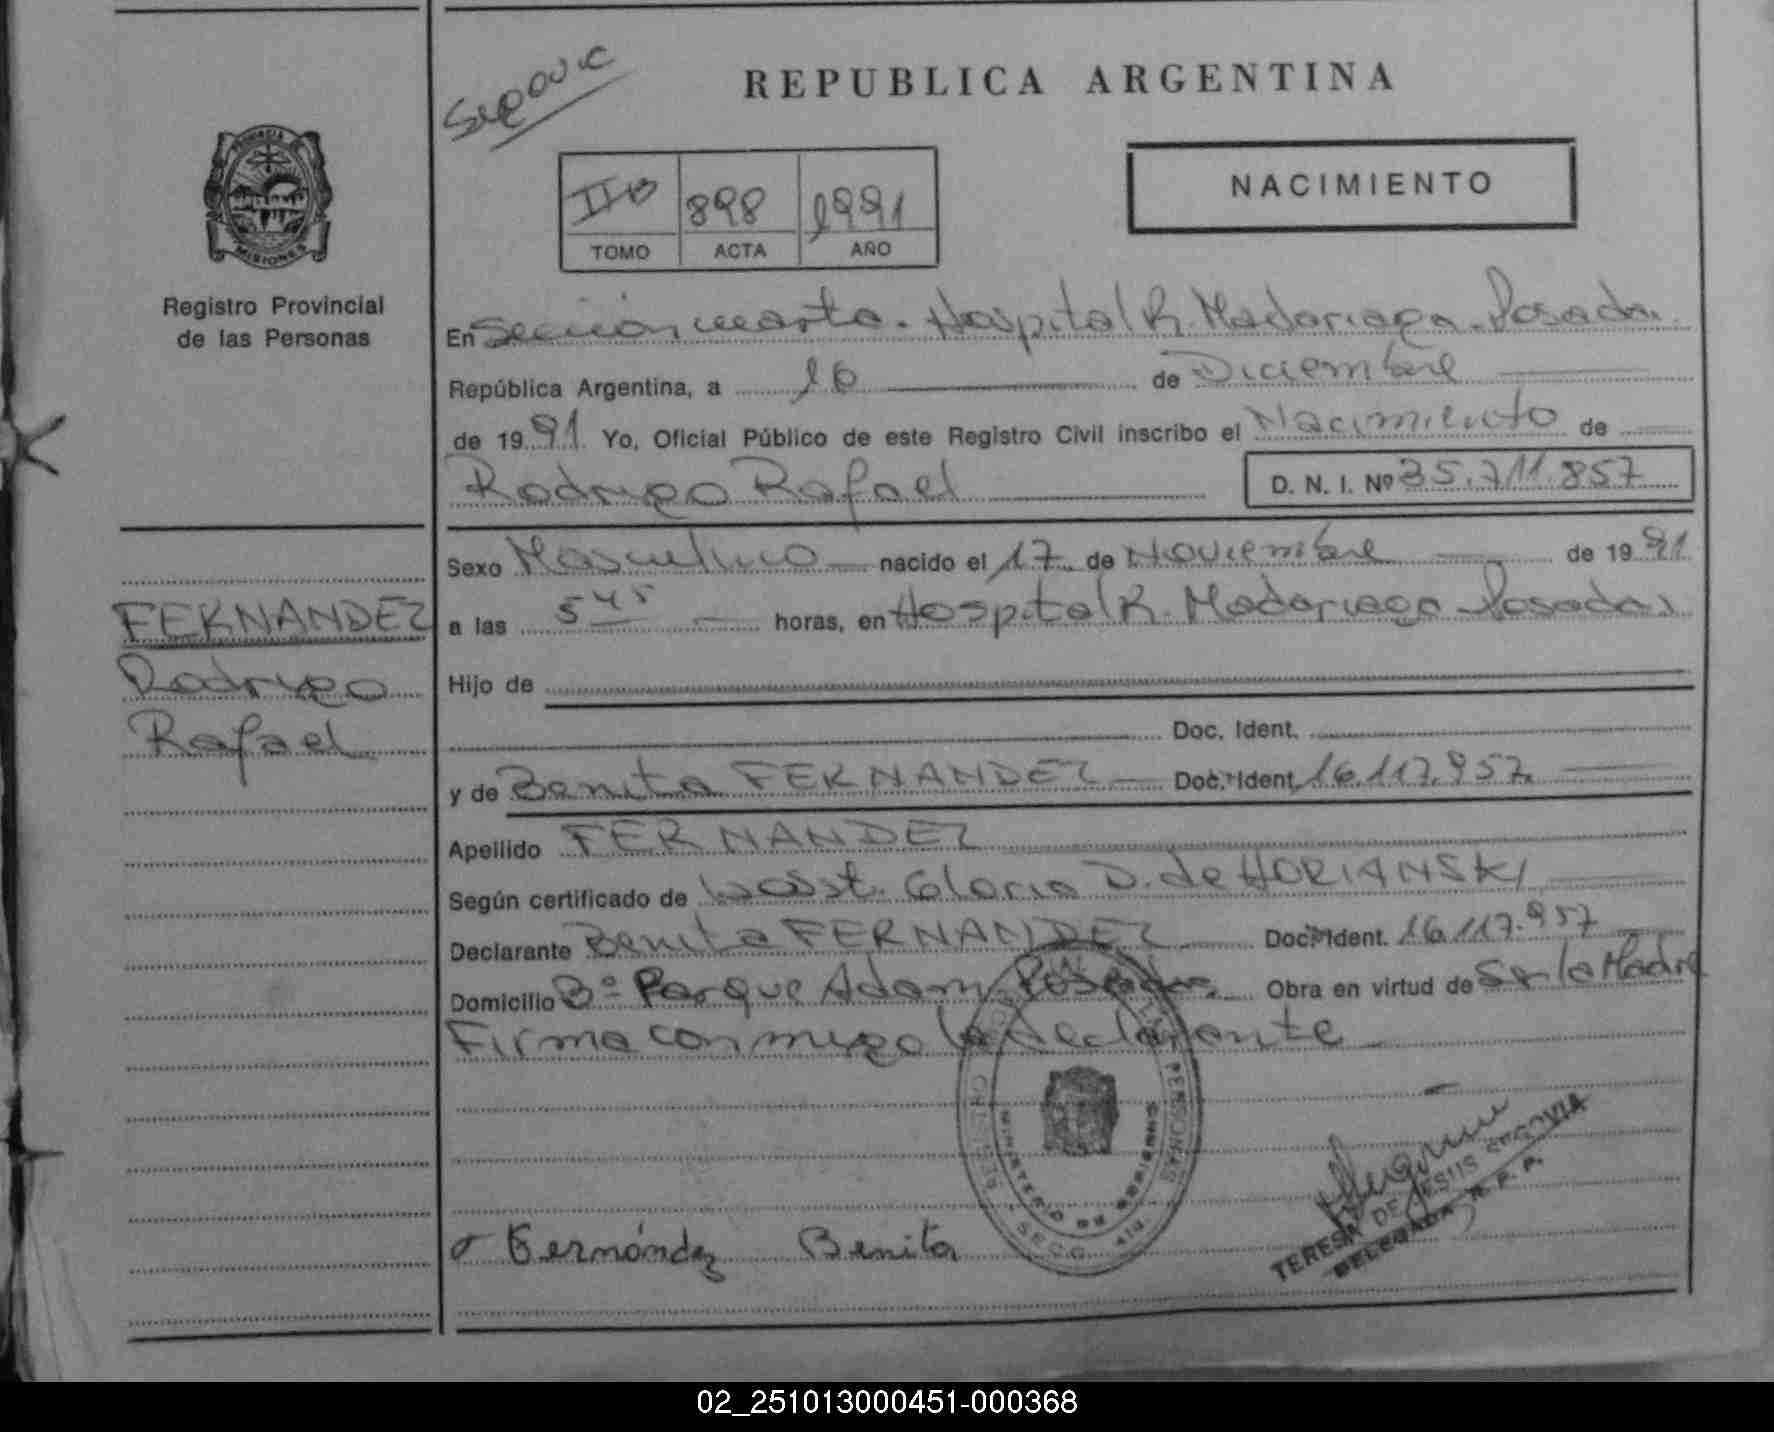 REPUBLICA ARGENTINA
NACIMIENTO
IIB 898 1991
TOMO ACTA AÑO
PROVINCIA
MISIONES
Registro Provincial
de las Personas
En Sección cuarta. Hospital R. Madariaga. Posadas.
República Argentina, a 16 de Diciembre
de 1991 Yo, Oficial Público de este Registro Civil inscribo el Nacimiento de
Rodrigo Rafael D. N. I. Nº 35.711.857
Sexo Masculino nacido el 17 de Noviembre de 1991
a las 5 45 horas, en Hospital R. Madariaga Posadas
Hijo de
Doc. Ident.
y de Benita FERNANDEZ Doc. Ident. 16.117.957.
Apellido FERNANDEZ
Según certificado de Gloria D. de HORIANSKI
Declarante Benita FERNANDEZ Doc. Ident. 16.117.957
Domicilio Bº Parque Adam. Posadas. Obra en virtud de Ser la Madre
Firma conmigo la declarante
FERNANDEZ
Rodrigo
Rafael
PERSONAS
MINISTERIO DE GOBIERNO
SECC. 4ta.
Fernández Benita
TERESA DE JESUS SEGOVIA
DELEGADA R. P. P.
02_251013000451-000368